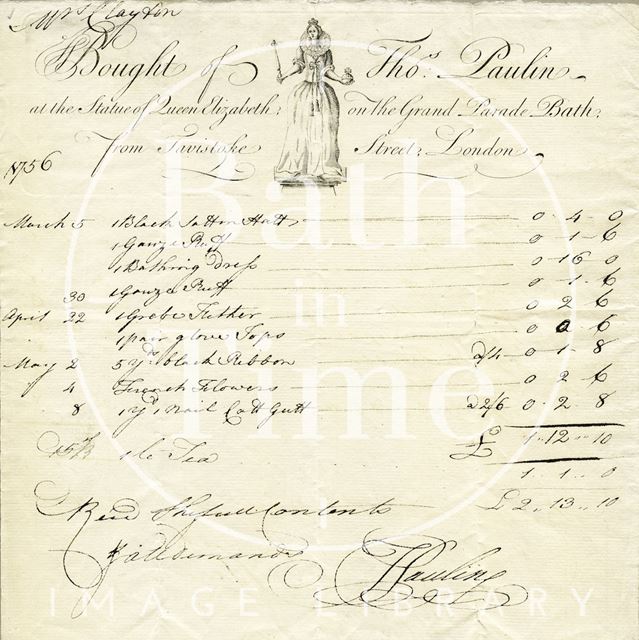 Mrs Clayton
Bought of Thos. Paulin
at the Statue of Queen Elizabeth; on the Grand Parade Bath;
from Tavistoke Street; London
1756
March 5 1 Black Sattan Hatt 0 - 4 - 0
1 Gauze Ruff 0 - 1 - 6
1 Bathing Dress 0 - 16 0
30 1 Gauze Ruff 0 - 1 - 6
April 22 1 Grebe Fether 0 2 6
1 pair glove Tops 0 0 - 6
May 2 5 Yds black Ribbon a/4 0 - 1 - 8
4 French Flowers 0 2 - 6
8 1 Yd Nail Catt Gutt a 2/6 0 - 2 8
£ 1 - 12 - 10
Tea 1 .. 1 .. 0
£ 2 .. 13 .. 10
Recd the full Contents
& all demands
T Paulin
Bath
in
Time
IMAGE LIBRARY